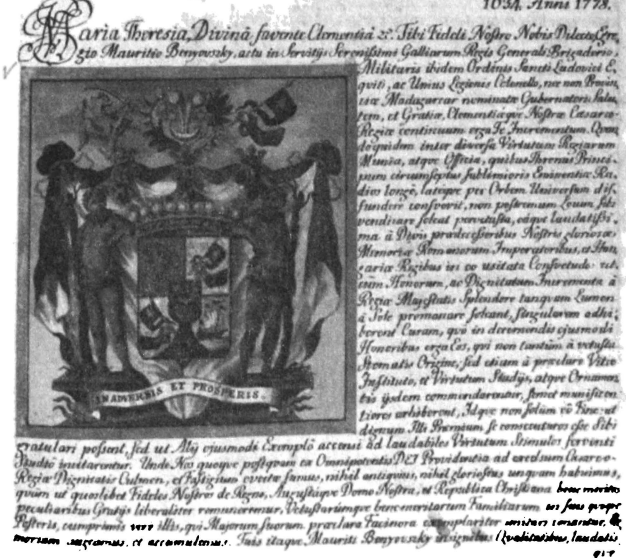 1034. Anni 1778.
Maria Theresia, Divinâ favente Clementiâ &c. Tibi Fideli Nostro Nobis Dilecto Egre-
gio Mauritio Benyovszky, actu in Servitijs Serenissimi Galliarum Regis Generali Brigaderio,
Militaris ibidem Ordinis Sancti Ludovici E,
quiti, ac Unius Legionis Colonello, nec non Provin,
ciæ Madagascar nominatæ Gubernatori Salu,
tem, et Gratiæ, Clementiæque Nostræ Cæsareo
Regiæ continuum erga Te Incrementum. Quan,
doquidem inter diversa Virtutum Regiarum
Munia, atque Officia, quibus Thronus Princi,
pum circumseptus sublimioris Eminentiæ Ra,
dios longè, lateque per Orbem Universum dif,
fundere consvevit, non postremum Locum sibi
vendicare soleat pervetusta, eaque laudatissi,
ma à Divis prædecessoribus Nostris gloriosæ
Memoriæ Romanorum Imperatoribus, et Hun,
gariæ Regibus in eo usitata Consvetudo ut,
cum Honorum, ac Dignitatum Incrementa à
Regiæ Majestatis Splendore tanquam Lumen
à Sole promanare soleant, singularem adhi,
berent Curam, quô in decernendis ejusmodi
Honoribus erga Eos, qui non tantùm à vetusta
Stematis Origine, sed etiam à præclaro Vitæ
Instituto, et Virtutum Studijs, atque Ornamen,
tis ijsdem commendarentur, semet munificen,
tiores exhiberent, Idque non solùm eô Fine ut
dignum Illi Præmium se consecutos esse Sibi
IN ADVERSIS ET PROSPERIS.
gratulari possent, sed ut Alij ejusmodi Exemplô accensi ad laudabiles Virtutum Stimulos ferventi
Studio invitarentur. Unde Nos quoque postquam ex Omnipotentis DEI Providentia ad excelsum Cæsareo-
Regiæ Dignitatis Culmen, et Fastigium evectæ sumus, nihil antiquius, nihil gloriosius unquam habuimus,
quàm ut quoslibet Fideles Nostros de Regno, Augustaque Domo Nostra, et Republica Christiana bene meritos
peculiaribus Gratijs liberaliter remuneremur, Vetustarumque benemeritarum Familiarum
Posteris, cumprimis verò illis, qui Majorum suorum præclara Facinora exemplariter imitari conantur,
augeamus, et accumulemus. Tuis itaque Mauriti Benyovszky insignibus Qualitatibus, laudatis,
que